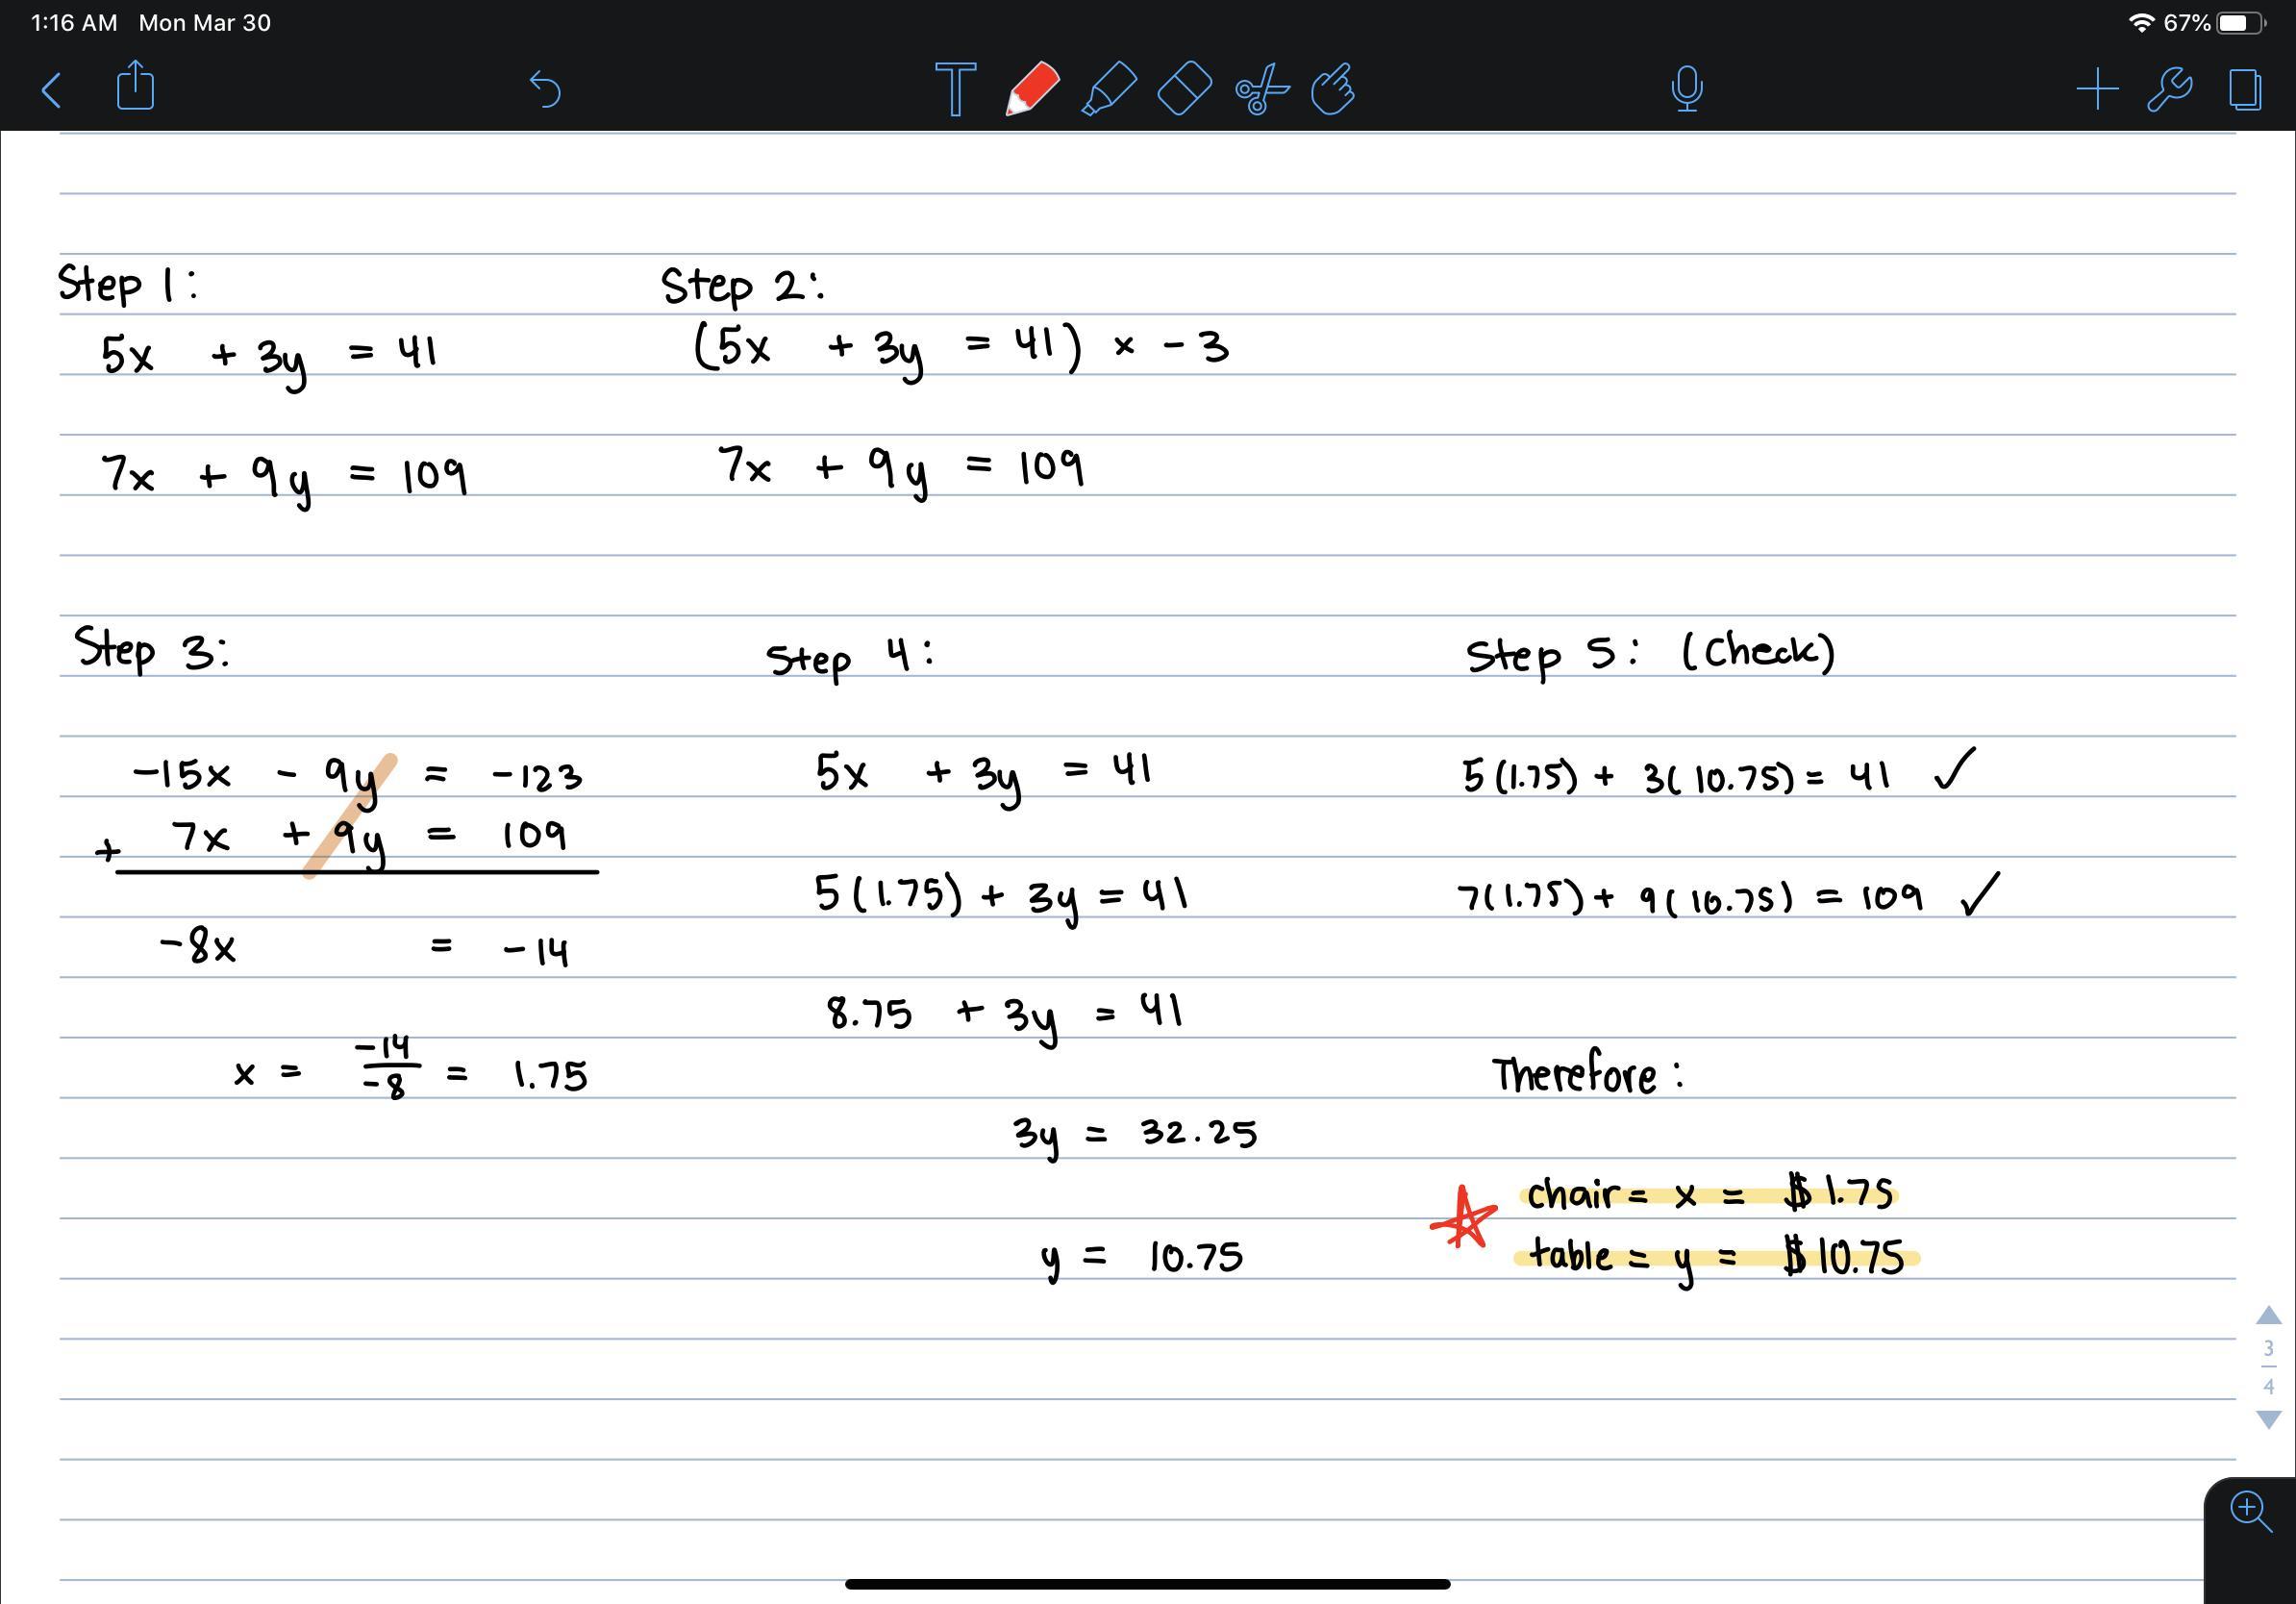 1:16 AM Mon Mar 30
67%
Step 1:
5x + 3y = 41
7x + 9y = 109
Step 2:
(5x + 3y = 41) × -3
7x + 9y = 109
Step 3:
-15x - 9y = -123
+ 7x + 9y = 109
-8x = -14
x = -14/-8 = 1.75
Step 4:
5x + 3y = 41
5(1.75) + 3y = 41
8.75 + 3y = 41
3y = 32.25
y = 10.75
Step 5: (Check)
5(1.75) + 3(10.75) = 41 ✓
7(1.75) + 9(10.75) = 109 ✓
Therefore:
chair = x = $1.75
table = y = $10.75
3
4